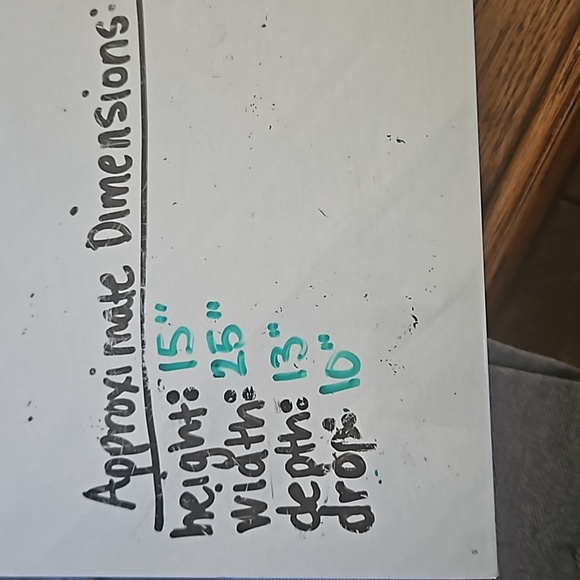 Approximate Dimensions:
height: 15"
width: 25"
depth: 13"
drop: 10"